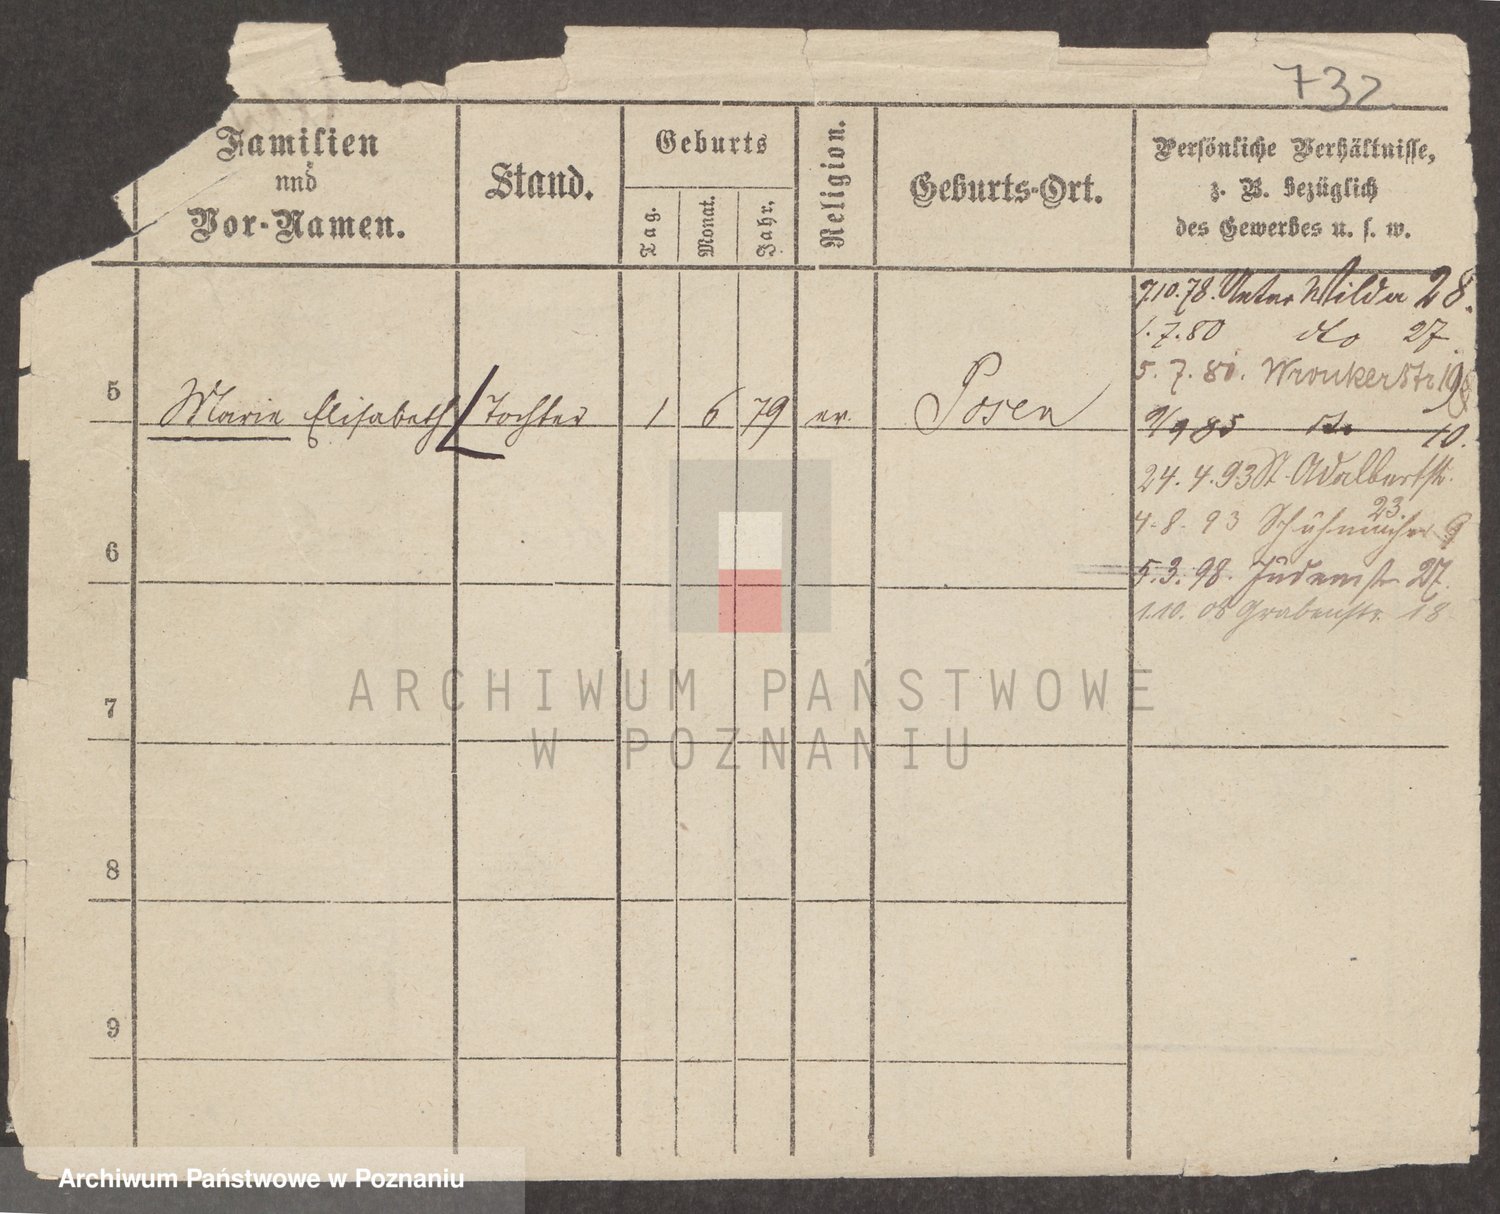 732
Familien und Vor-Namen.
Stand.
Geburts
Tag.
Monat.
Jahr.
Religion.
Geburts-Ort.
Persönliche Verhältnisse,
z. B. bezüglich
des Gewerbes u. s. w.
7.10.78. Unter Wilda 28.
1.7.80 dto 27
5.7.81. Wronkerstr 19
5 Marie Elisabeth Tochter 1 6 79 ev. Posen
9/9 85 dto 10.
24.4.93 St. Adalbertstr.
23.
4.8.93 Schuhmacher 9
6
5.3.98. Judenstr 27
1.10.08 Grabenstr. 18
7
ARCHIWUM PAŃSTWOWE
W POZNANIU
8
9
Archiwum Państwowe w Poznaniu